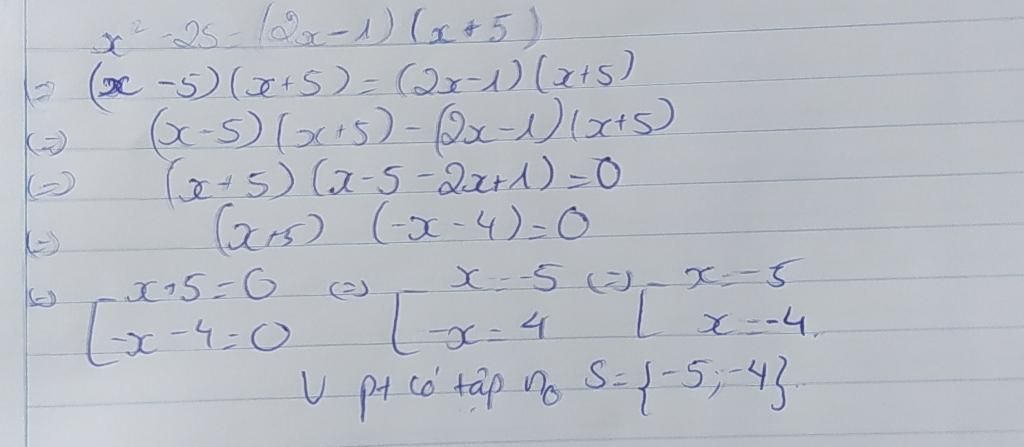 x² - 25 = (2x-1)(x+5)
(=) (x-5)(x+5) = (2x-1)(x+5)
(=) (x-5)(x+5) - (2x-1)(x+5)
(=) (x+5)(x-5-2x+1) = 0
(=) (x+5) (-x-4) = 0
(=) [ x+5=0 (=) [ x=-5 (=) [ x=-5
-x-4=0 -x=4 x=-4.
V pt có tập no S={-5;-4}.